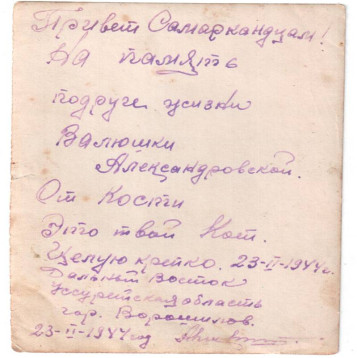 Привет Самаркандцам!
На память
подруге жизни
Валюшки
Александровской.
От Кости
Это твой Кот.
Целую крепко. 23-II-1944г.
Дальный Восток
Уссурейская область
гор. Ворошилов.
23-II-1944 год